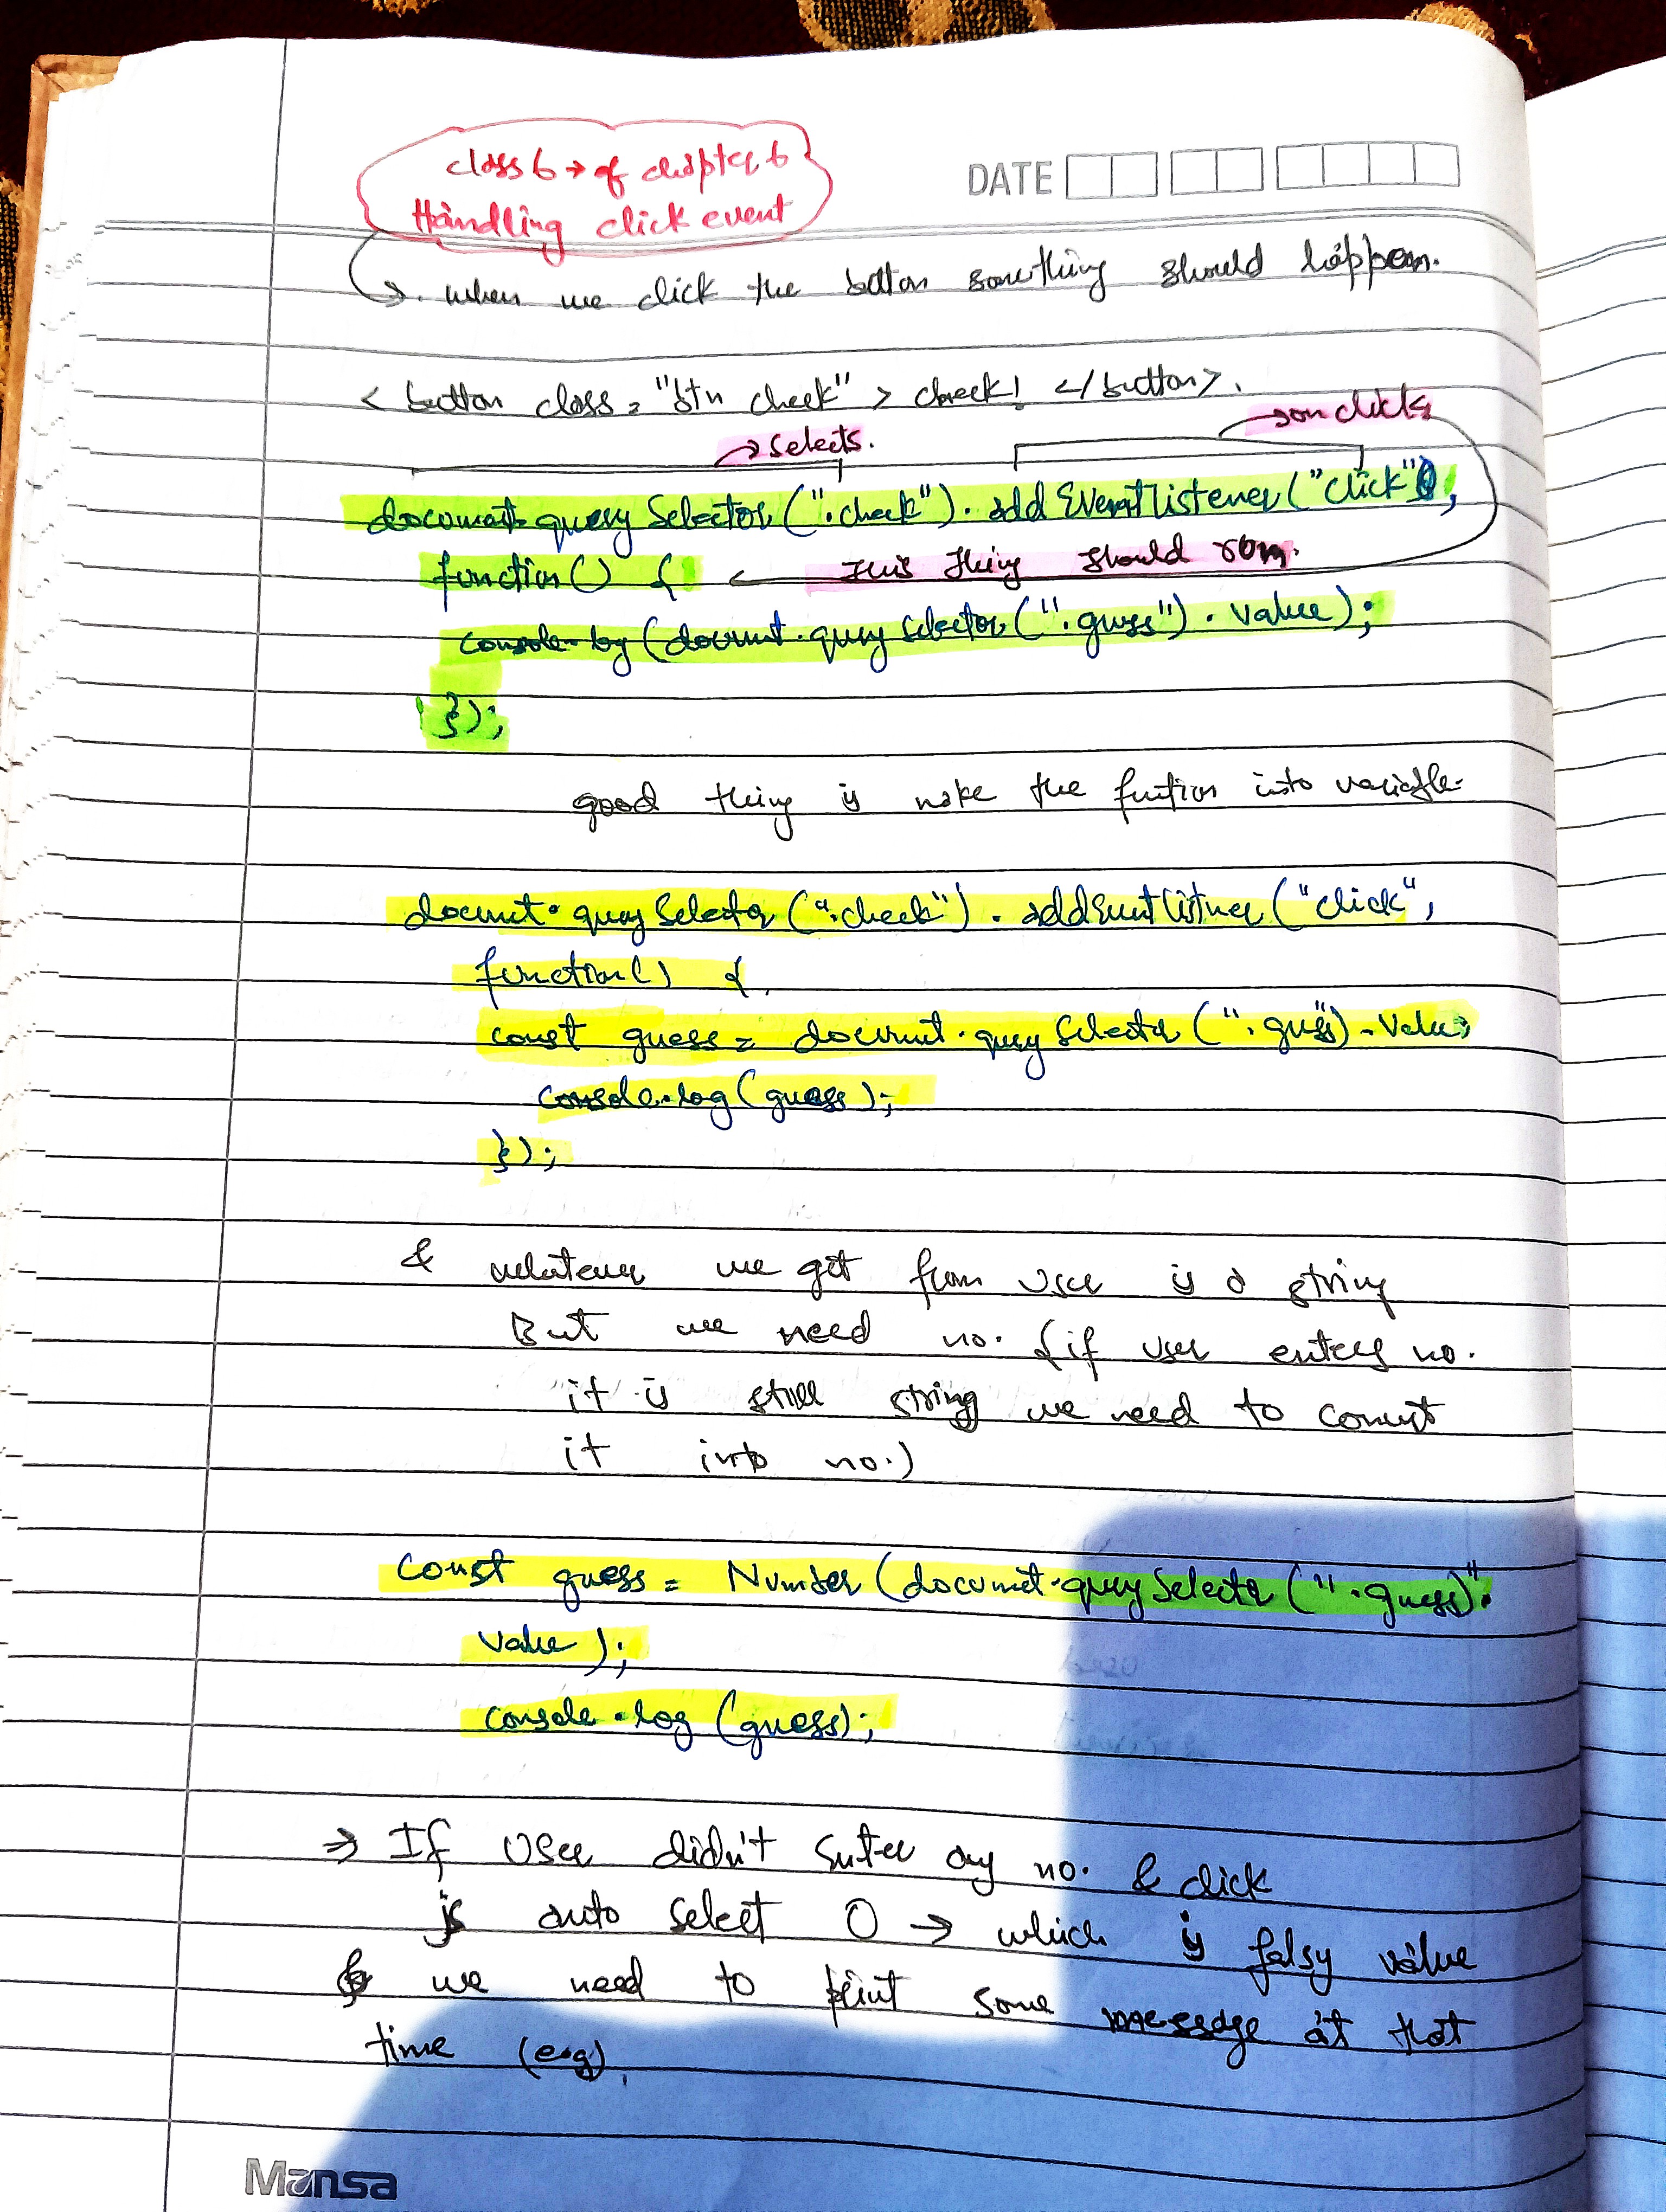 class 6 → of chapter 6
Handling click event
DATE
→. when we click the button something should happen.
< button class = "btn check" > check! </button>.
→ selects.
→ on clicks
document.querySelector(".check").addEventListener("click",
function() {
← this thing should run.
console.log(documnt.query Selector(".guess").value);
});
good thing is make the funtion into variable.
documnt.query Selector(".check").addEventListner("click",
function() {
const guess = documnt.query Selector(".guess").value;
console.log(guess);
});
& whatever we get from user is a string
But we need no. (if user enters no.
it is still string we need to convert
it into no.)
const guess = Number(documet.query Selector(".guess)".
value);
console.log(guess);
⇒ If user didn't enter any no. & click
js auto select 0 → which is falsy value
& we need to print some message at that
time (e.g).
Mansa